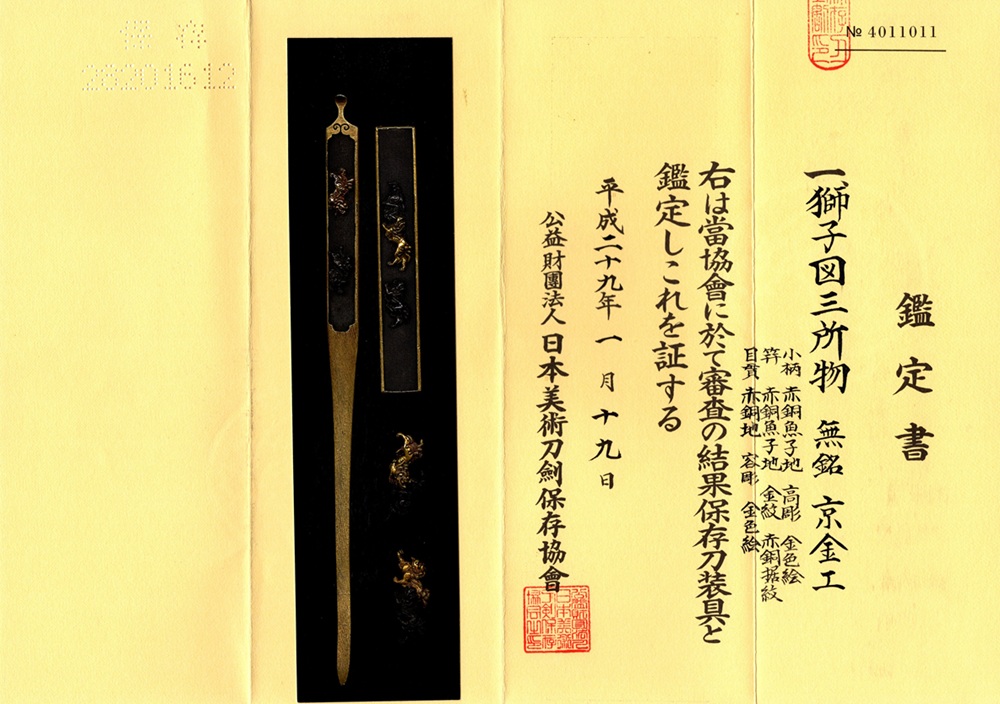 № 4011011
鑑定書
一、獅子図三所物 無銘 京金工
小柄 赤銅魚子地 高彫 金色絵
笄 赤銅魚子地 金紋 赤銅据紋
目貫 赤銅地 容彫 金色絵
右は當協會に於て審査の結果保存刀装具と
鑑定しこれを証する
平成二十九年一月十九日
公益財團法人 日本美術刀劍保存協會
保存
28201612